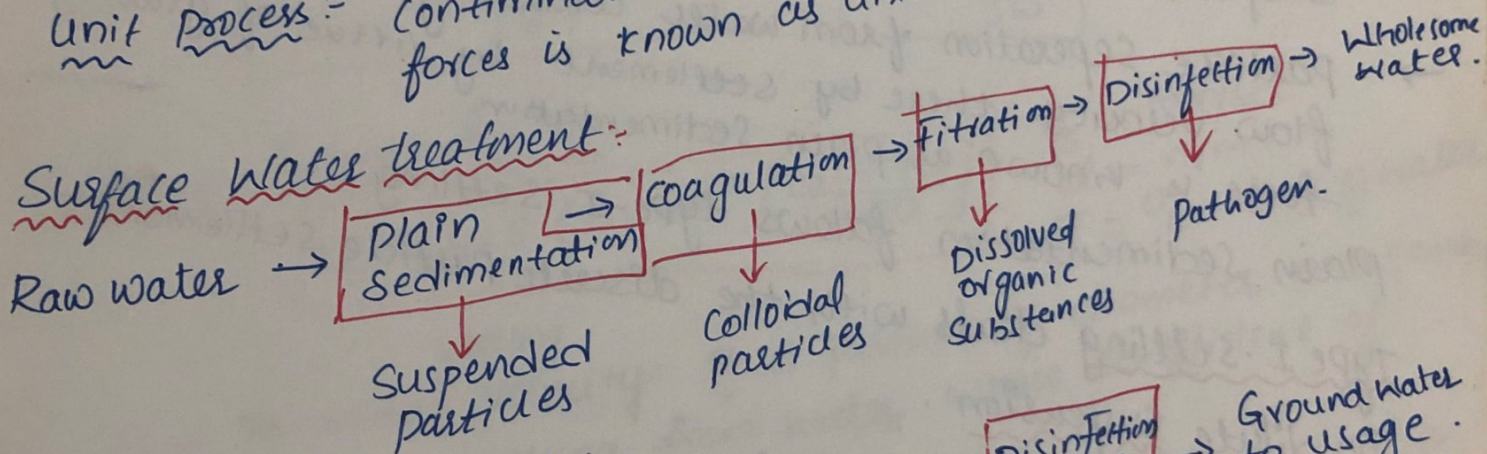 Unit Process:-
forces is known as
Surface Water treatment:-
Raw water → Plain sedimentation → Coagulation → Fitration → Disinfection → Wholesome water.
Suspended particles
Colloidal particles
Dissolved organic substances
Pathogen.
Disinfection → Ground water
usage.